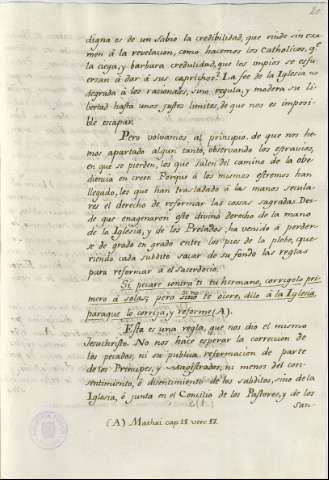 20
digna es de un Sabio la credibilidad, que rinde sin exa-
men á la revelacion, como hacemos los Catholicos, qe.
la ciega, y barbara credulidad, que los impios se esfu-
erzan á dár á sus caprichos. La fee de la Iglesia no
degrada á los racionales, sino regula, y modera su li-
bertad hasta unos justos limites, de que nos es imposi-
ble escapar.
Pero volvamos al principio de que nos he-
mos apartado algun tanto, observando los estravios,
en que se pierden, los que salen del camino de la obe-
diencia en creer. Porque á los mismos estremos han
llegado, los que han trasladado á las manos secula-
res el derecho de reformar las cosas sagradas. Des-
de que enagenaron este divino derecho de la mano
de la Iglesia, y de los Prelados, ha venido á perder-
se de grado en grado entre los pies de la plebe, que-
riendo cada subdito sacar de su fondo las reglas
para reformar á el Sacerdocio.
Si pecare contra ti tu hermano, corrigelo pri-
mero á solas; pero si no te oiere, dilo á la Iglesia,
para que lo corrija, y reforme (A).
Esta es una regla, que nos dio el mismo
Jesuchristo. No nos hace esperar la correccion de
los pecados, ni su publica reformacion de parte
de los Principes, y Magistrados, ni menos del con-
sentimiento, ó disentimiento de los subditos, sino de la
Iglesia, ó junta en el Concilio de los Pastores, y de los
San-
(A) Mathæi cap. 18. vers. 17.